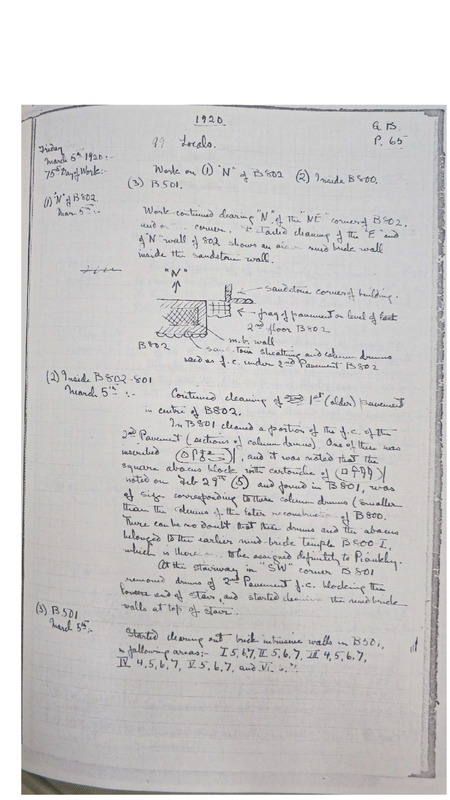 1920.
G.B.
P. 65
99 Locals.
Friday
March 5th 1920:-
75th Day of Work:-
Work on (1) "N" of B 802 (2) Inside B 800.
(3) B 501.
(1) "N" of B 802
Mar. 5th :-
Work continued clearing "N" of the "NE" corner of B 802,
corner. cleaning of the "E" end
of "N" wall of 802 shows an mud brick wall
inside the sandstone wall.
"N"
sandstone corner of building.
frag of pavement on level of
2nd floor B 802
m.b. wall
B 802
sandstone sheathing and column drums
used as f.c. under 2nd Pavement B 802
(2) Inside B 802-801
March 5th :-
Continued cleaning of 1st (older) pavement
in centre of B 802.
In B 801 cleaned a portion of the f.c. of the
2nd Pavement (sections of column drums) One of these was
inscribed , and it was noted that the
square abacus block with cartouche of
noted on Feb 29th (5) and found in B 801, was
of size corresponding to these column drums (smaller
than the columns of the later reconstruction of B 800.
There can be no doubt that these drums and the abacus
belonged to the earlier mud-brick temple B 800 I,
which is to be assigned definitely to Piankhy.
At the stairway in "SW" corner B 801
removed drums of 2nd Pavement f.c. blocking the
lower end of stair, and started cleaning the mud brick
walls at top of stair.
(3) B 501
March 5th :-
Started clearing out brick intrusive walls in B 501,
in following areas:- I 5, 6, 7, II 5, 6, 7, III 4, 5, 6, 7,
IV 4, 5, 6, 7, V 5, 6, 7, and VI 6, 7.